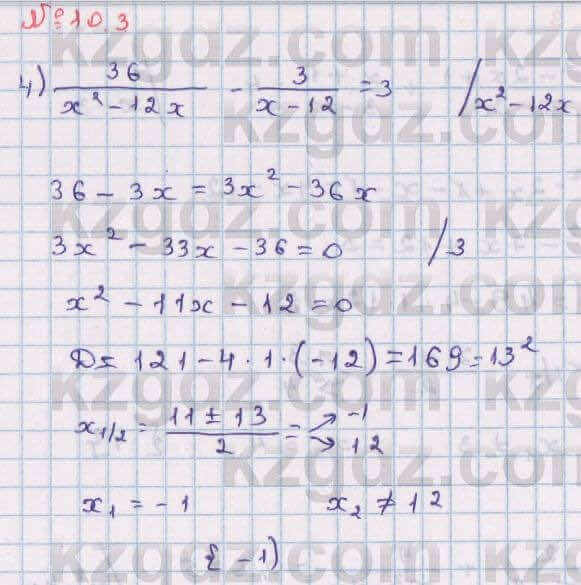 №10.3
4) 36/(x² - 12x) - 3/(x - 12) = 3 /x² - 12x
36 - 3x = 3x² - 36x
3x² - 33x - 36 = 0 /3
x² - 11x - 12 = 0
D = 121 - 4 · 1 · (-12) = 169 = 13²
x₁/₂ = (11 ± 13)/2 = ↗ -1 ↘ 12
x₁ = -1 x₂ ≠ 12
{-1)
kzgdz.com